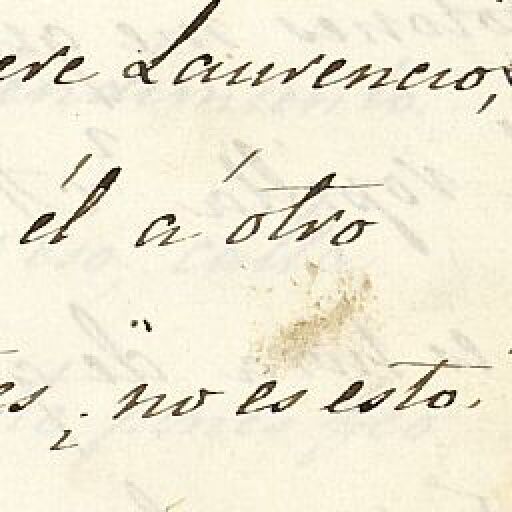 ere Laurencio,
él á otro
es; no es esto.